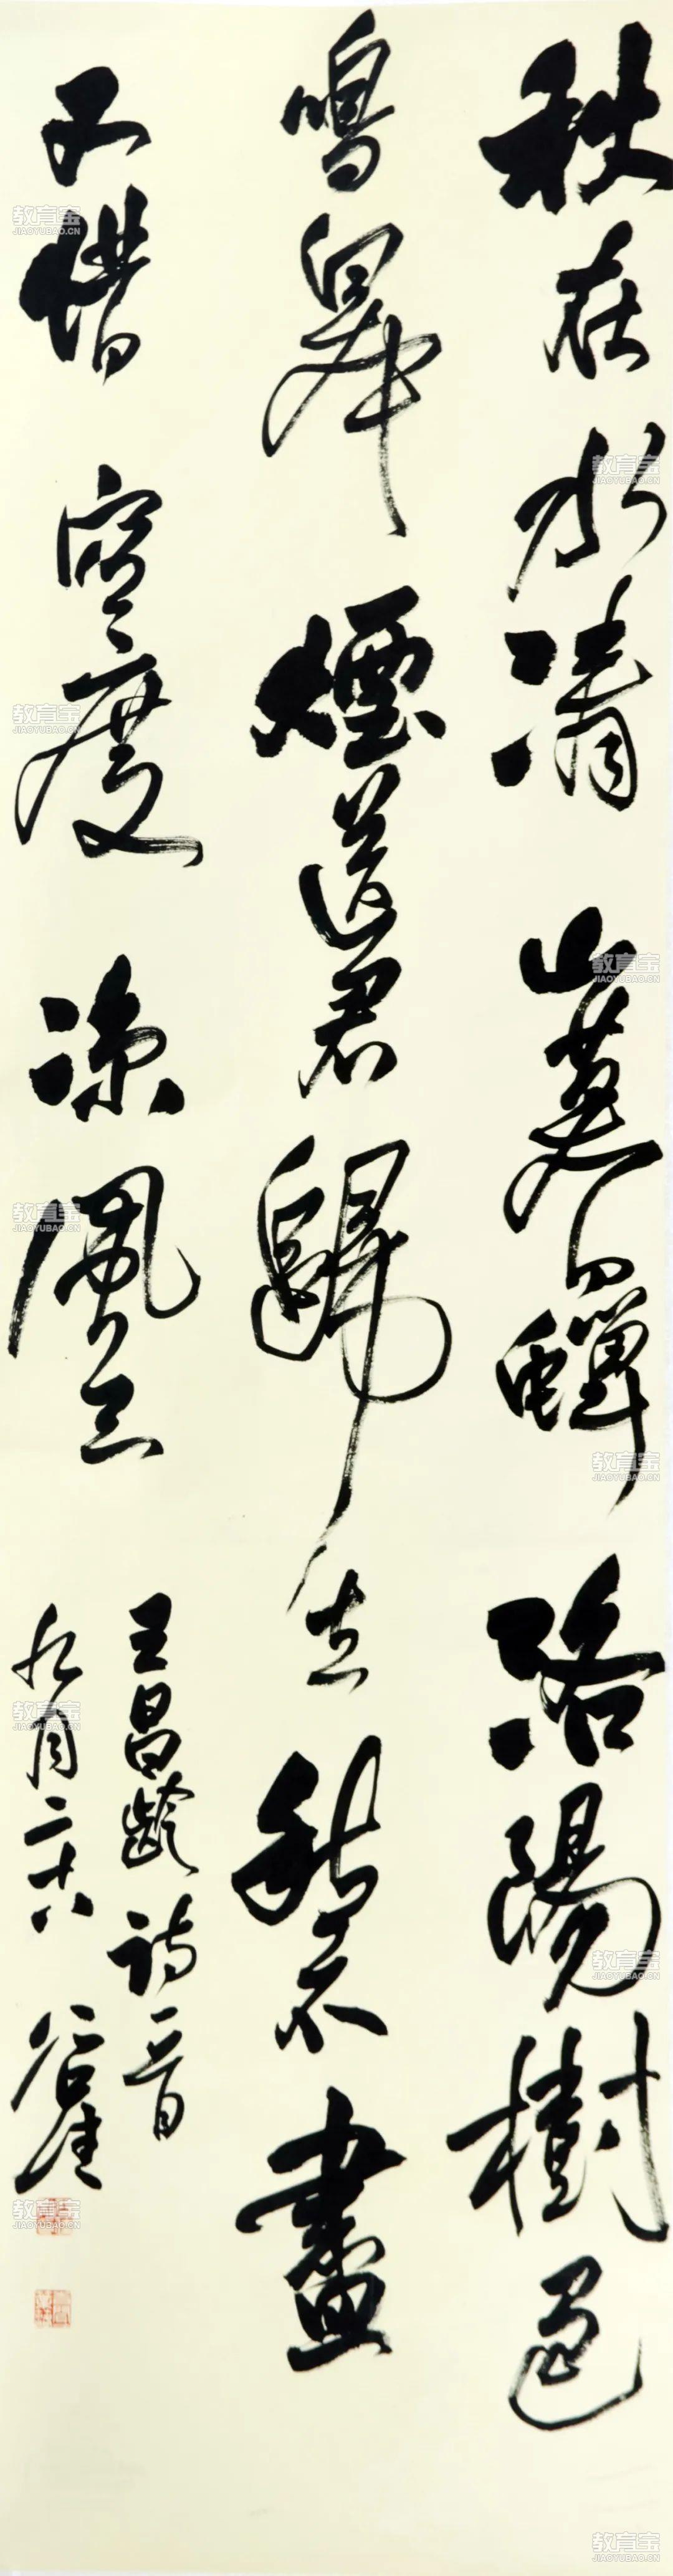 秋在水清山暮蟬洛陽樹色
鳴皋煙送君歸去愁不盡
又惜空度涼風天
王昌齡詩一首
九月二十八
教育宝
JIAOYUBAO.CN